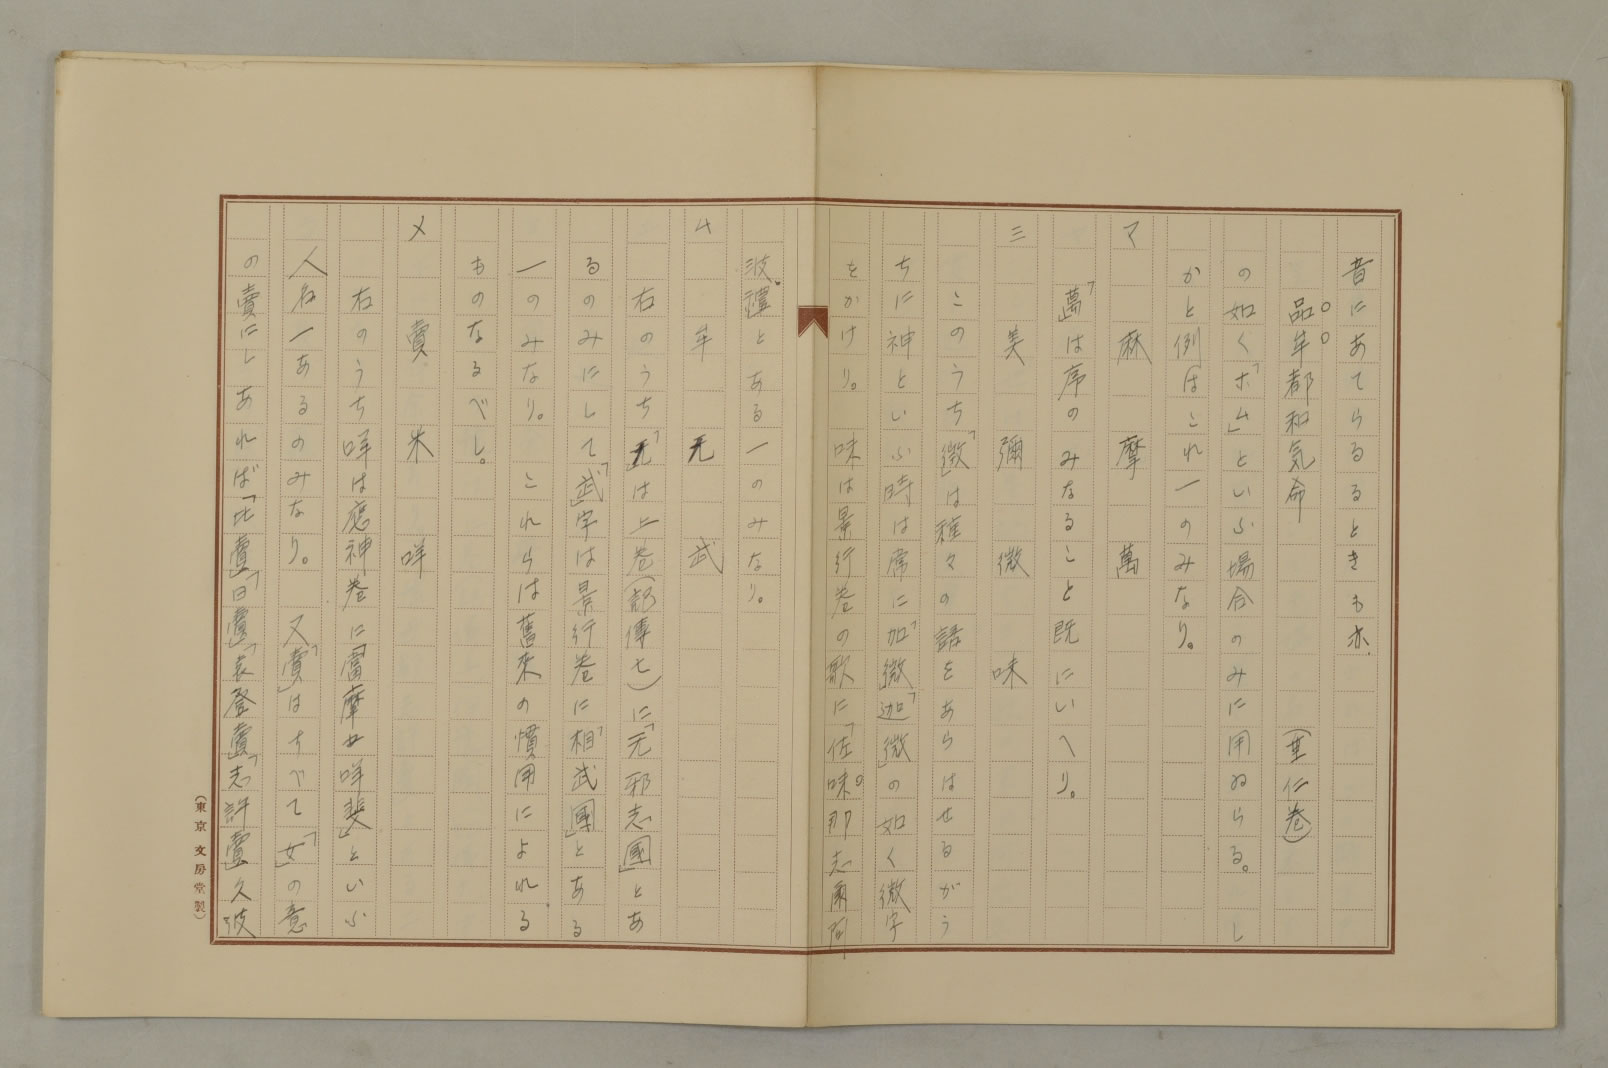 音にあてらるるときも亦
品牟都和気命　（垂仁巻）
の如く「ホム」といふ場合のみに用ゐらる。し
かと例はこれ一のみなり。
マ　麻　摩　萬
「萬」は序のみなること既にいへり。
ミ　美　彌　微　味
このうち「微」は種々の語をあらはせるがう
ちに神といふ時は席に「加微」「迦微」の如く微字
をかけり。　味は景行巻の歌に「佐味那志爾阿
波禮」とある一のみなり。
ム　牟　无　武
右のうち「无」は上巻（記傳七）に「无邪志國」とあ
るのみにして「武」字は景行巻に「相武國」とある
一のみなり。　これらは舊来の慣用によれる
ものなるべし。
メ　賣　米　咩
右のうち咩は應神巻に「當摩女咩斐」といふ
人名一あるのみなり。　又「賣」はすべて「女」の意
の賣にしあれば「比賣」「日賣」「袁登賣」「志許賣」久波
（東京　文房堂製）